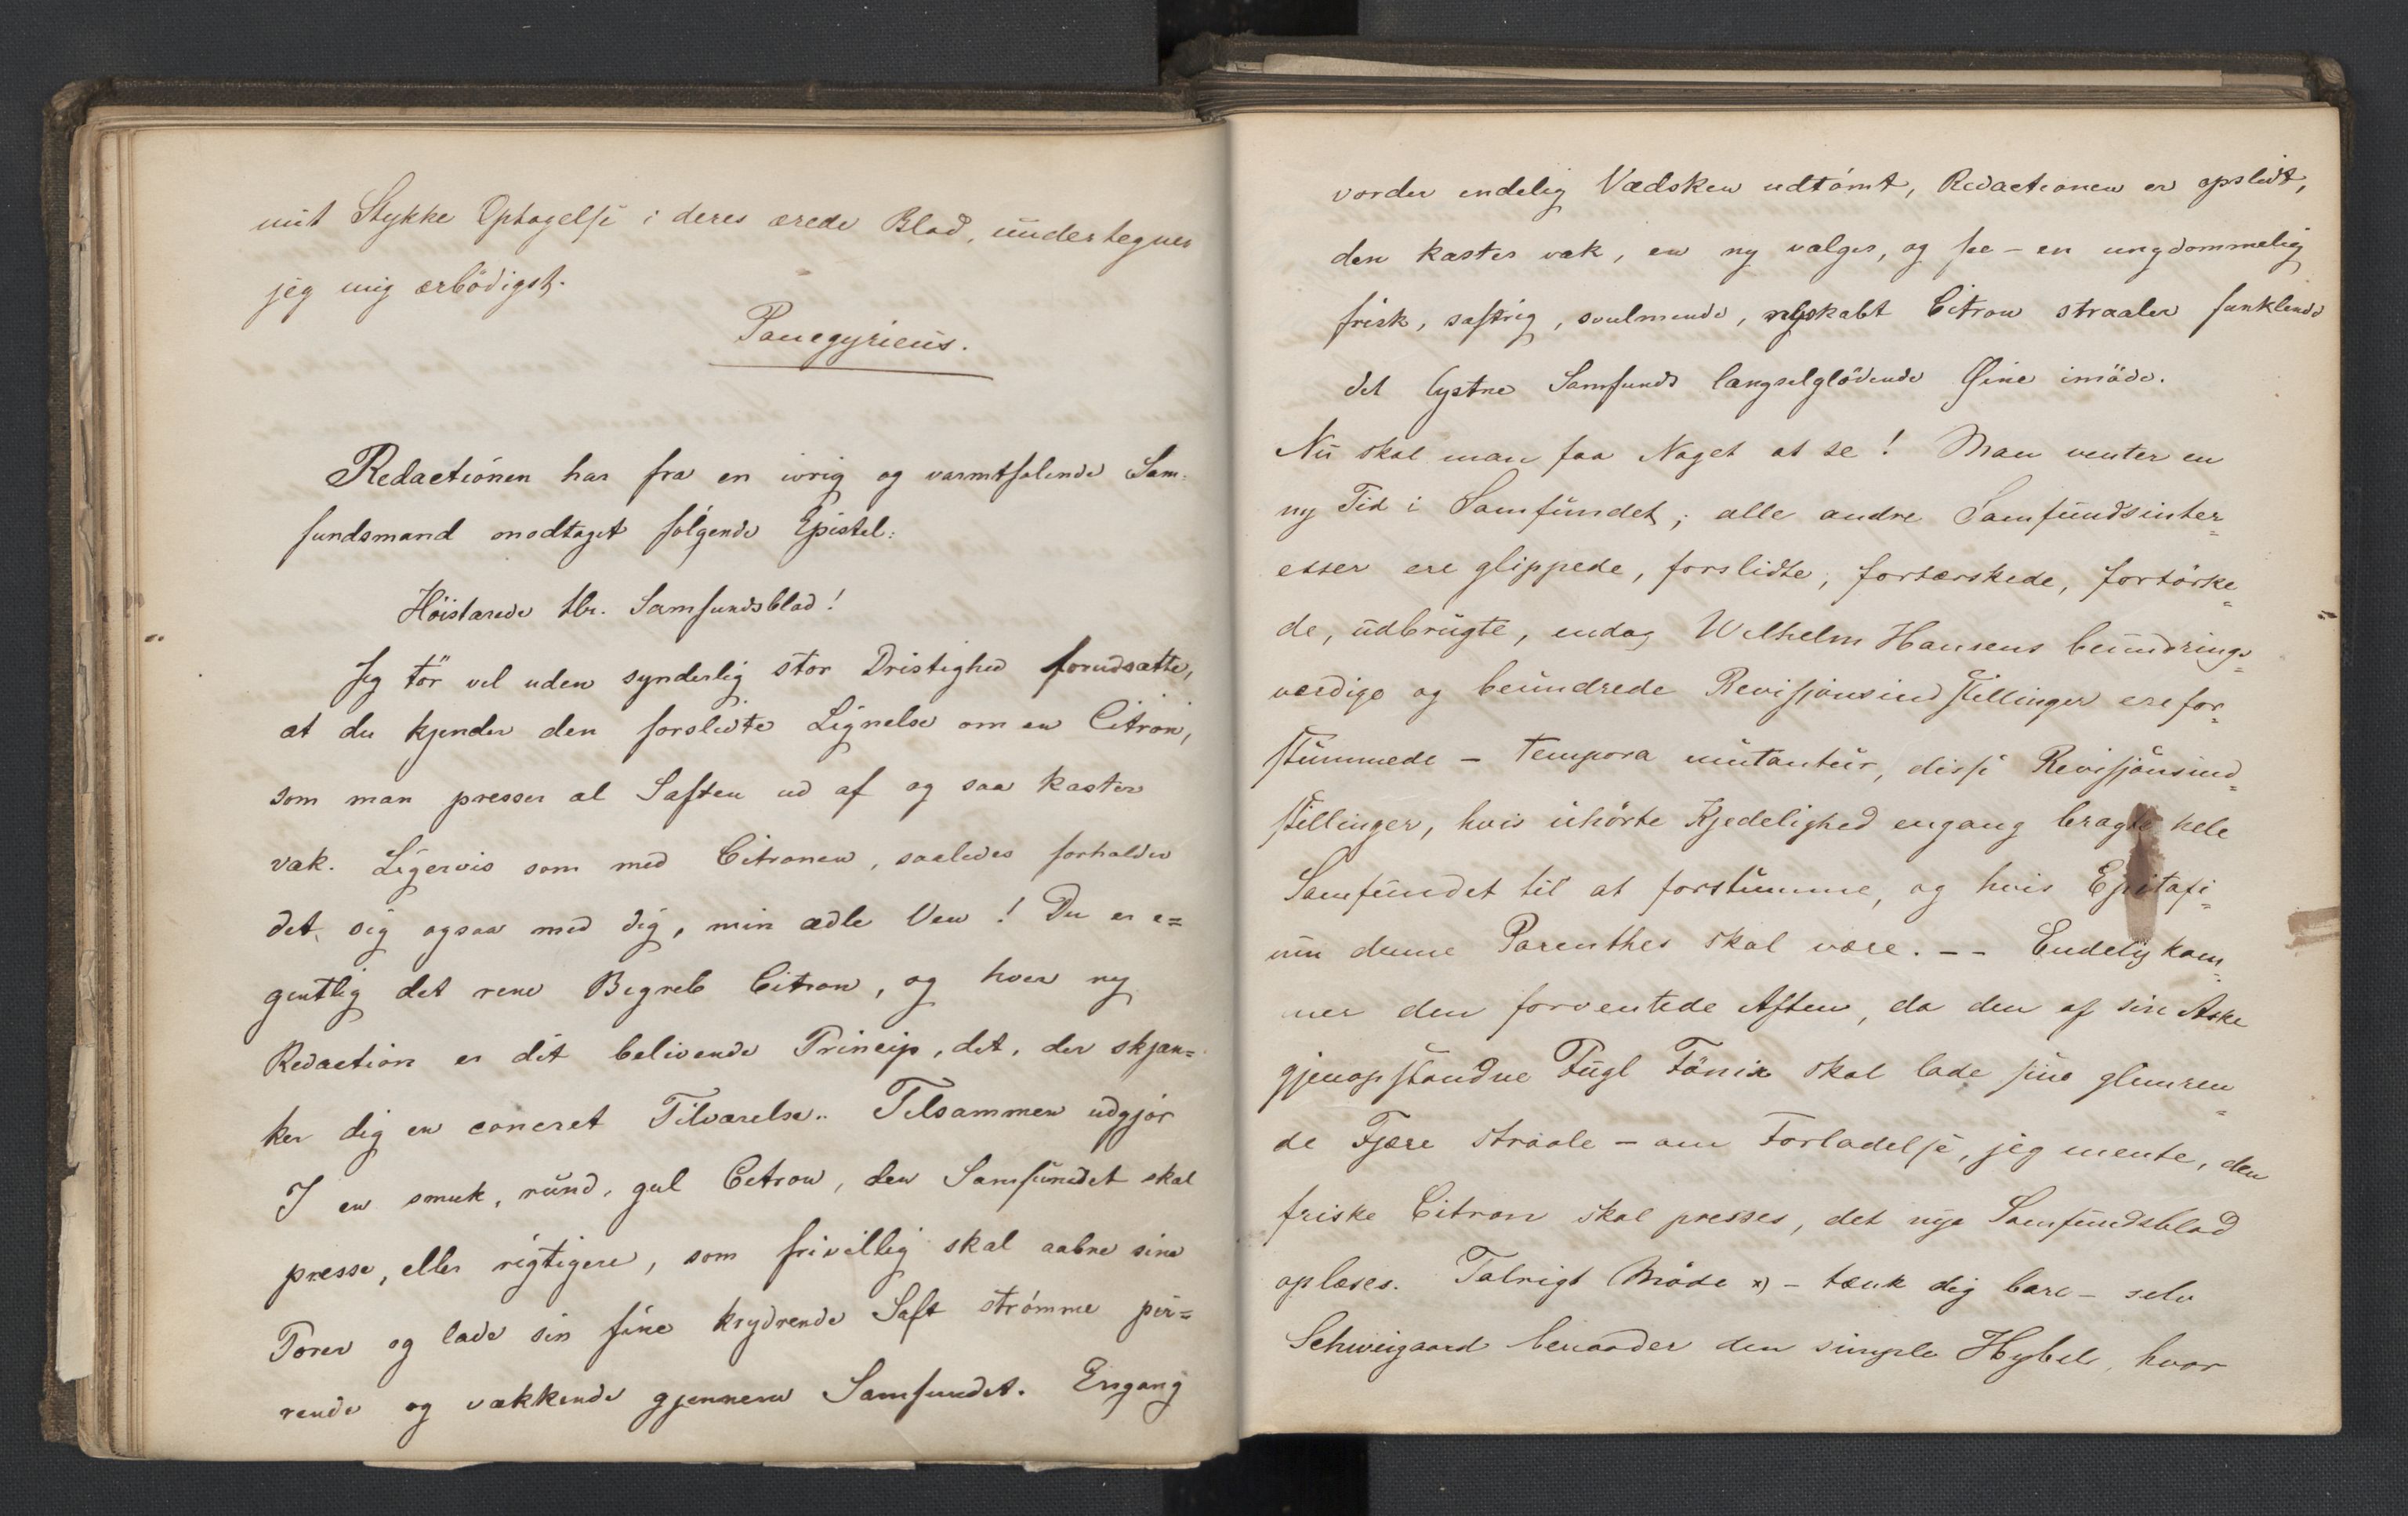 mit Stykke Optagelse i deres ærede Blad, undertegner
jeg mig ærbödigst.
Panegyricus.
Redactionen har fra en ivrig og varmtfølende Sam-
fundsmand modtaget følgende Epistel:
Höistærede Hr. Samfundsblad!
Jeg tör vel uden synderlig stor Dristighed forudsætte,
at du kjender den forslidte Lignelse om en Citron,
som man presser al Saften ud af og saa kaster
væk. Ligervis som med Citronen, saaledes forholder
det sig ogsaa med dig, min ædle Ven! Du er e=
gentlig det rene Begreb Citron, og hver ny
Redaction er dit belivende Princip, det, der skjæn=
ker dig en concret Tilværelse. Tilsammen udgjör
I en smuk, rund, gul Citron, den Samfundet skal
presse, eller rigtigere, som frivillig skal aabne sine
Porer og lade sin fine krydrende Saft strömme pir=
rende og vækkende gjennem Samfundet. Engang
vorder endelig Vædsken udtömt, Redactionen er opslidt,
den kastes væk, en ny vælges, og see – en ungdommelig
frisk, saftrig, svulmende, nyskabt Citron straaler funklende
det lystne Samfunds længselglödende Øine imöde.
Nu skal man faa Noget at se! Man venter en
ny Tid i Samfundet; alle andre Samfundsinter=
esser ere glippede, forslidte, fortærskede, fortörke=
de, udbrugte, endog Wilhelm Hansens beundrings=
værdige og beundrede Revisjonsindstillinger ere for=
stummede – tempora mutantur, disse Revisjonsind=
stillinger, hvis uhörte Kjedelighed engang bragte hele
Samfundet til at forstumme, og hvis Epitafi=
um denne Parenthes skal være. -- Endelig kom=
mer den forventede Aften, da den af sin Aske
gjenopstandne Fugl Fönix skal lade sine glimren=
de Fjære straale – om Forladelse, jeg mente, den
friske Citron skal presses, det nye Samfundsblad
oplæses. Talrigt Möde x) – tænk dig bare – selv
Schweigaard benaader den simple Hybel, hvor